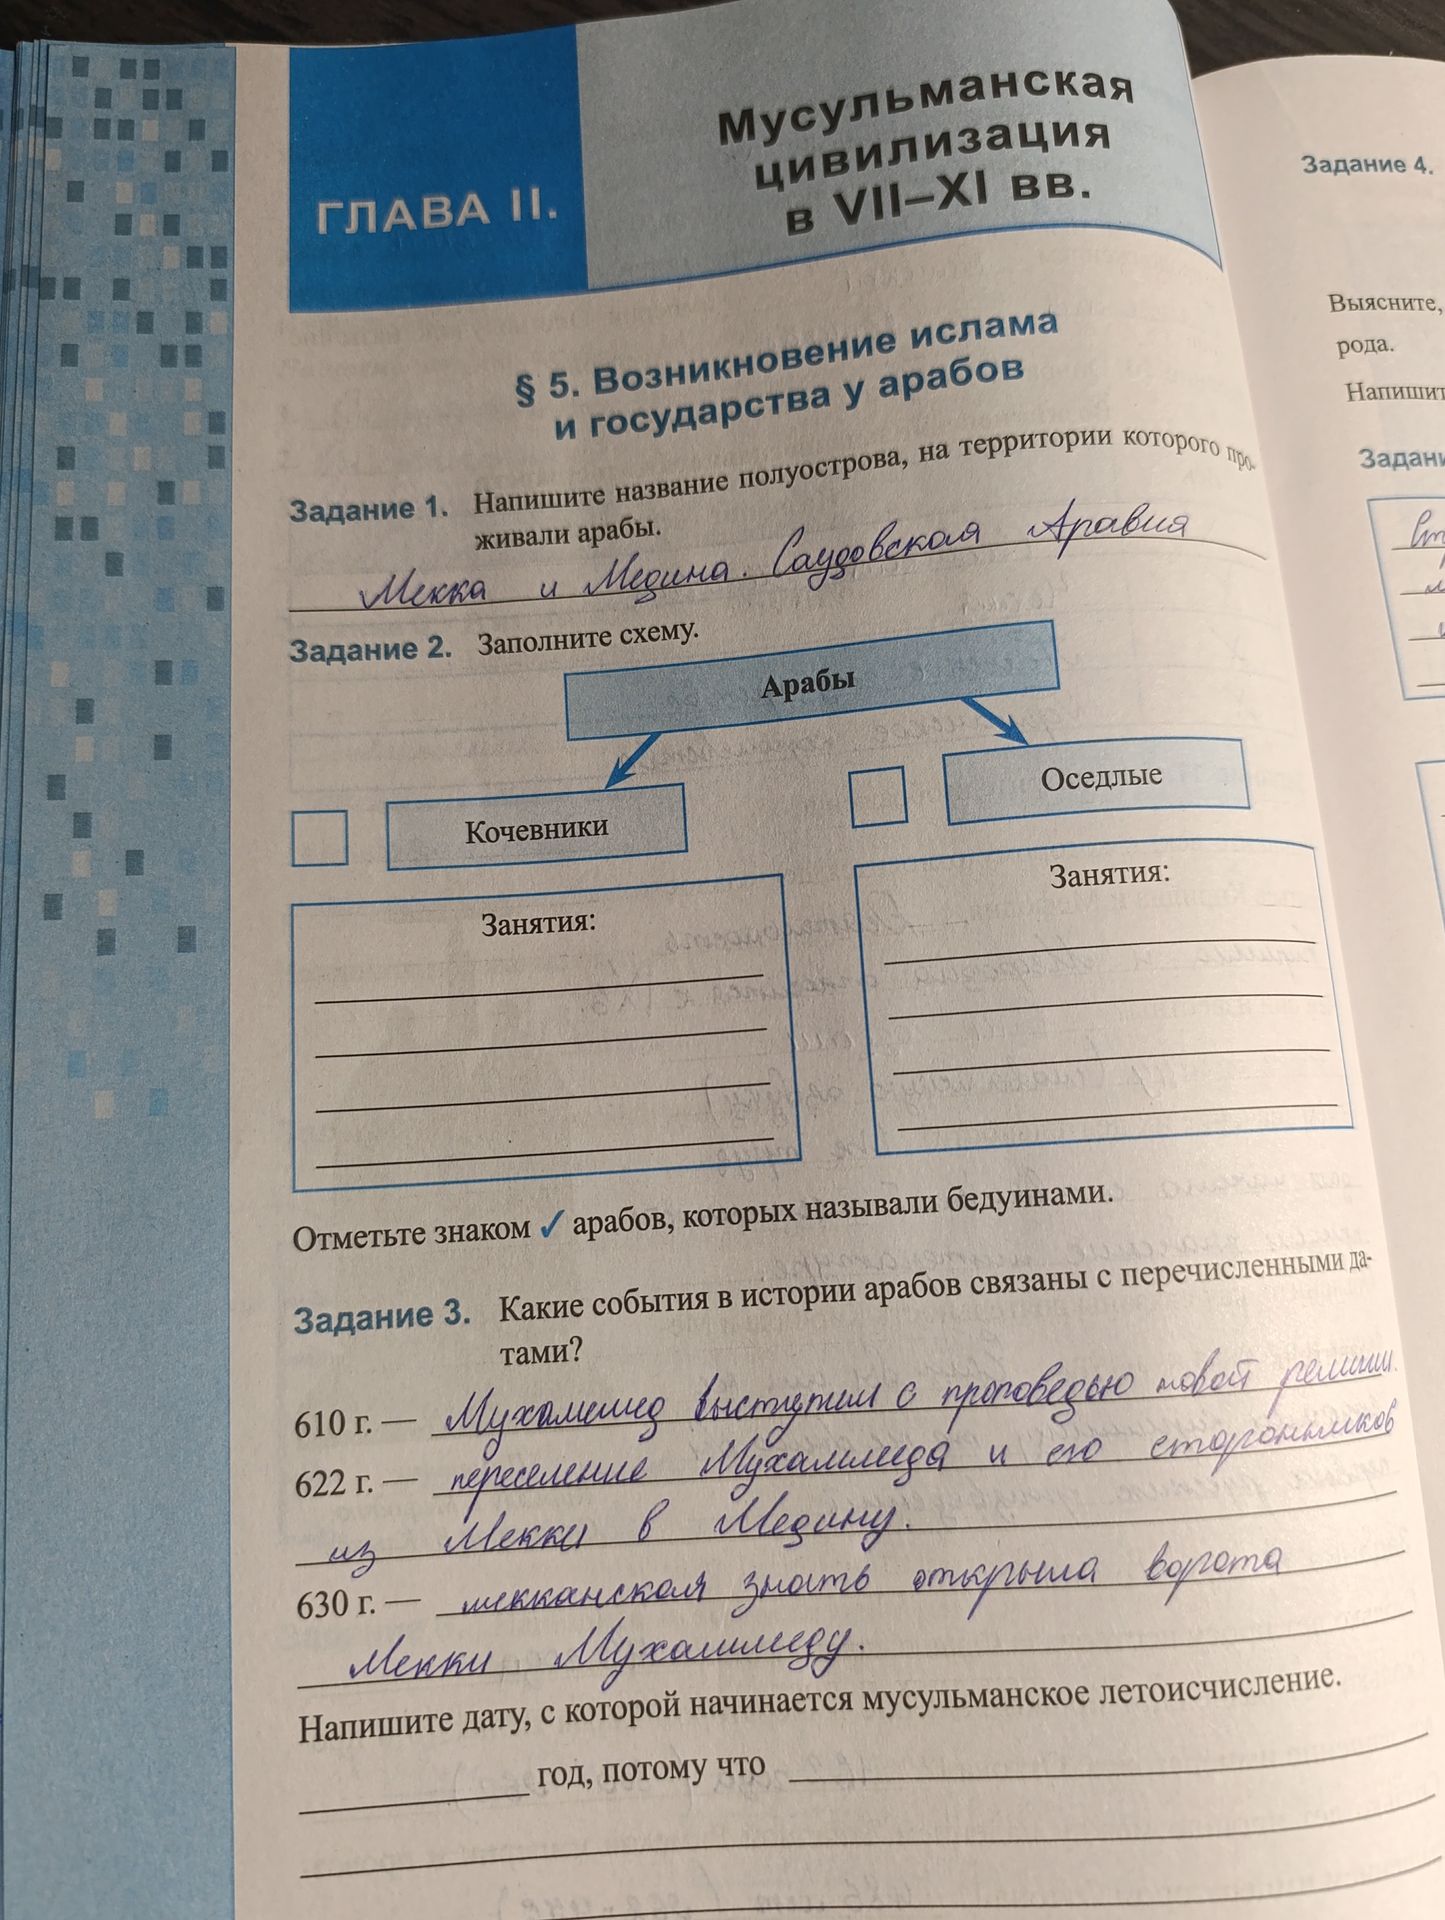 ГЛАВА II.
Мусульманская
цивилизация
в VII–XI вв.
§ 5. Возникновение ислама
и государства у арабов
Задание 1. Напишите название полуострова, на территории которого про-
живали арабы.
Мекка и Медина. Саудовская Аравия
Задание 2. Заполните схему.
Арабы
Кочевники
Оседлые
Занятия:
Занятия:
Отметьте знаком ✓ арабов, которых называли бедуинами.
Задание 3. Какие события в истории арабов связаны с перечисленными да-
тами?
610 г. — Мухаммед выступил с проповедью новой религии.
622 г. — переселение Мухаммеда и его сторонников
из Мекки в Медину.
630 г. — мекканская знать открыла ворота
Мекки Мухаммеду.
Напишите дату, с которой начинается мусульманское летоисчисление.
год, потому что
Задание 4.
Выясните,
рода.